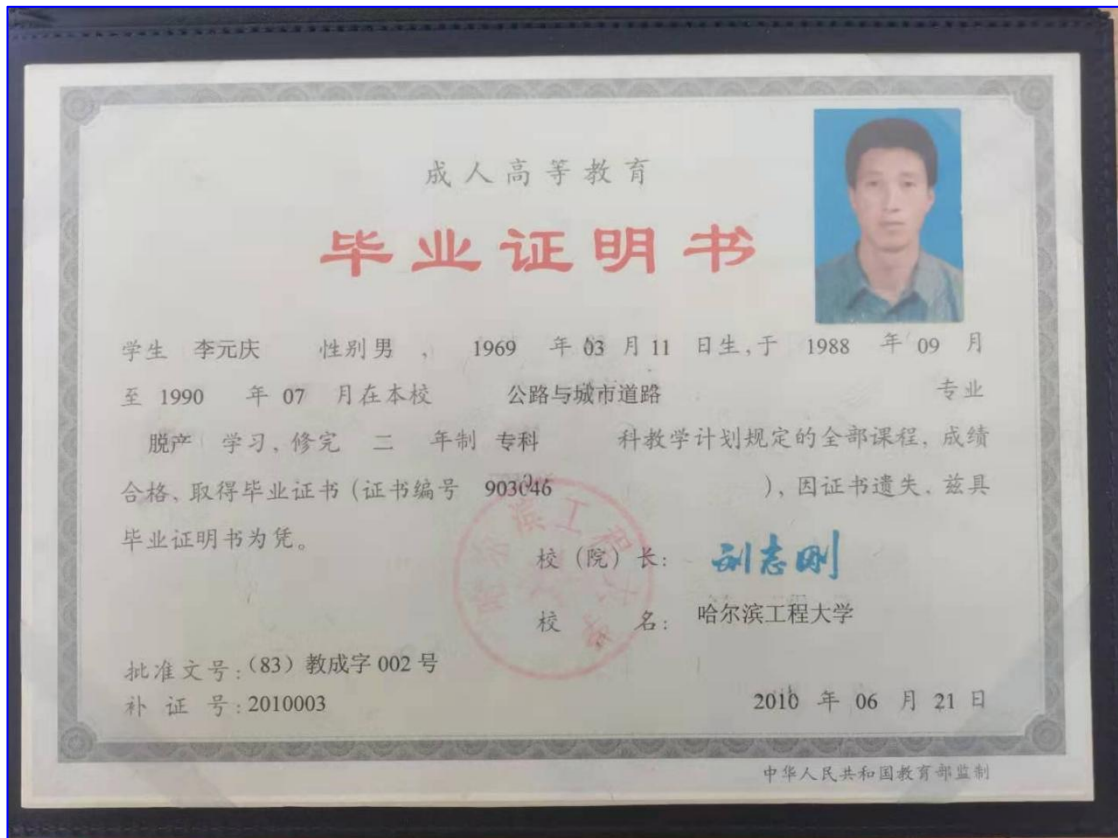 成人高等教育
毕业证明书
学生 李元庆 性别 男 , 1969 年 03 月 11 日生,于 1988 年 09 月
至 1990 年 07 月在本校 公路与城市道路 专业
脱产 学习,修完 二 年制 专科 科教学计划规定的全部课程,成绩
合格,取得毕业证书(证书编号 903046 ),因证书遗失,兹具
毕业证明书为凭。
校(院)长: 刘志刚
校 名: 哈尔滨工程大学
批准文号:(83)教成字 002 号
补 证 号:2010003
2010 年 06 月 21 日
中华人民共和国教育部监制
哈尔滨工程大学